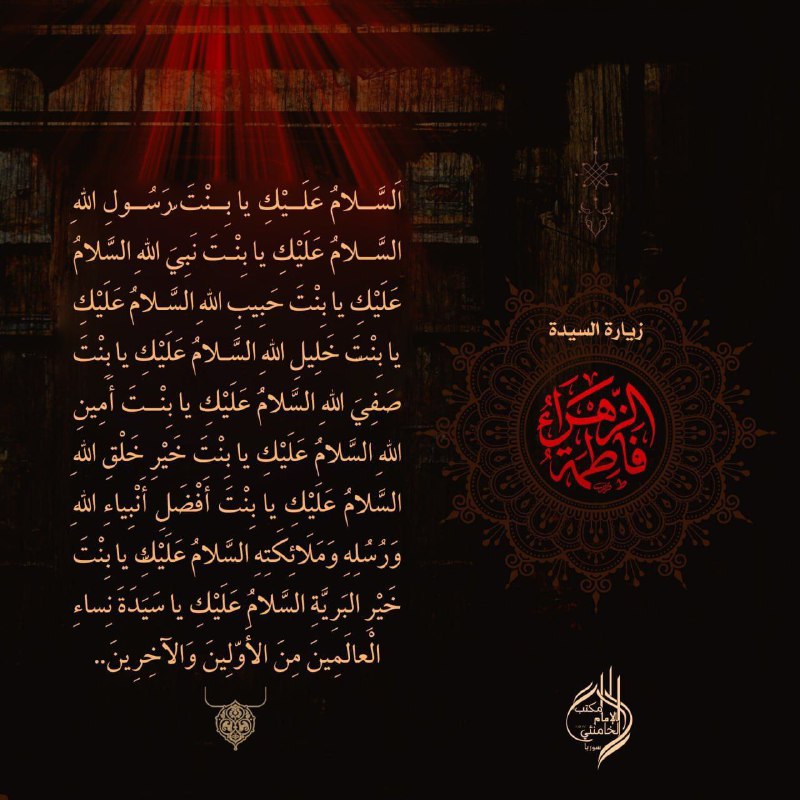 زيارة السيدة
فاطمة الزهراء
اَلسَّـلامُ عَلَـيْكِ يا بِـنْتَ رَسُـولِ اللهِ
السَّـلامُ عَلَيْكِ يا بِنْـتَ نَبِيَ اللهِ السَّلامُ
عَلَيْكِ يا بِنْتَ حَبِيبِ اللهِ السَّـلامُ عَلَيْكِ
يا بِنْتَ خَلِيلِ اللهِ السَّـلامُ عَلَيْكِ يا بِنْتَ
صَفِيَ اللهِ السَّلامُ عَلَيْكِ يا بِنْـتَ أَمِينِ
اللهِ السَّلامُ عَلَيْكِ يا بِنْتَ خَيْرِ خَلْقِ اللهِ
السَّلامُ عَلَيْكِ يا بِنْتَ أَفْضَلِ أَنْبِياءِ اللهِ
وَرُسُلِهِ وَمَلَائِكَتِهِ السَّلامُ عَلَيْكِ يا بِنْتَ
خَيْرِ البَرِيَّةِ السَّلامُ عَلَيْكِ يا سَيَدَةَ نِساءِ
الْعالَمِينَ مِنَ الأَوّلِينَ وَالآخِرِينَ..
مكتب
الإمام
الخامنئي
سوريا